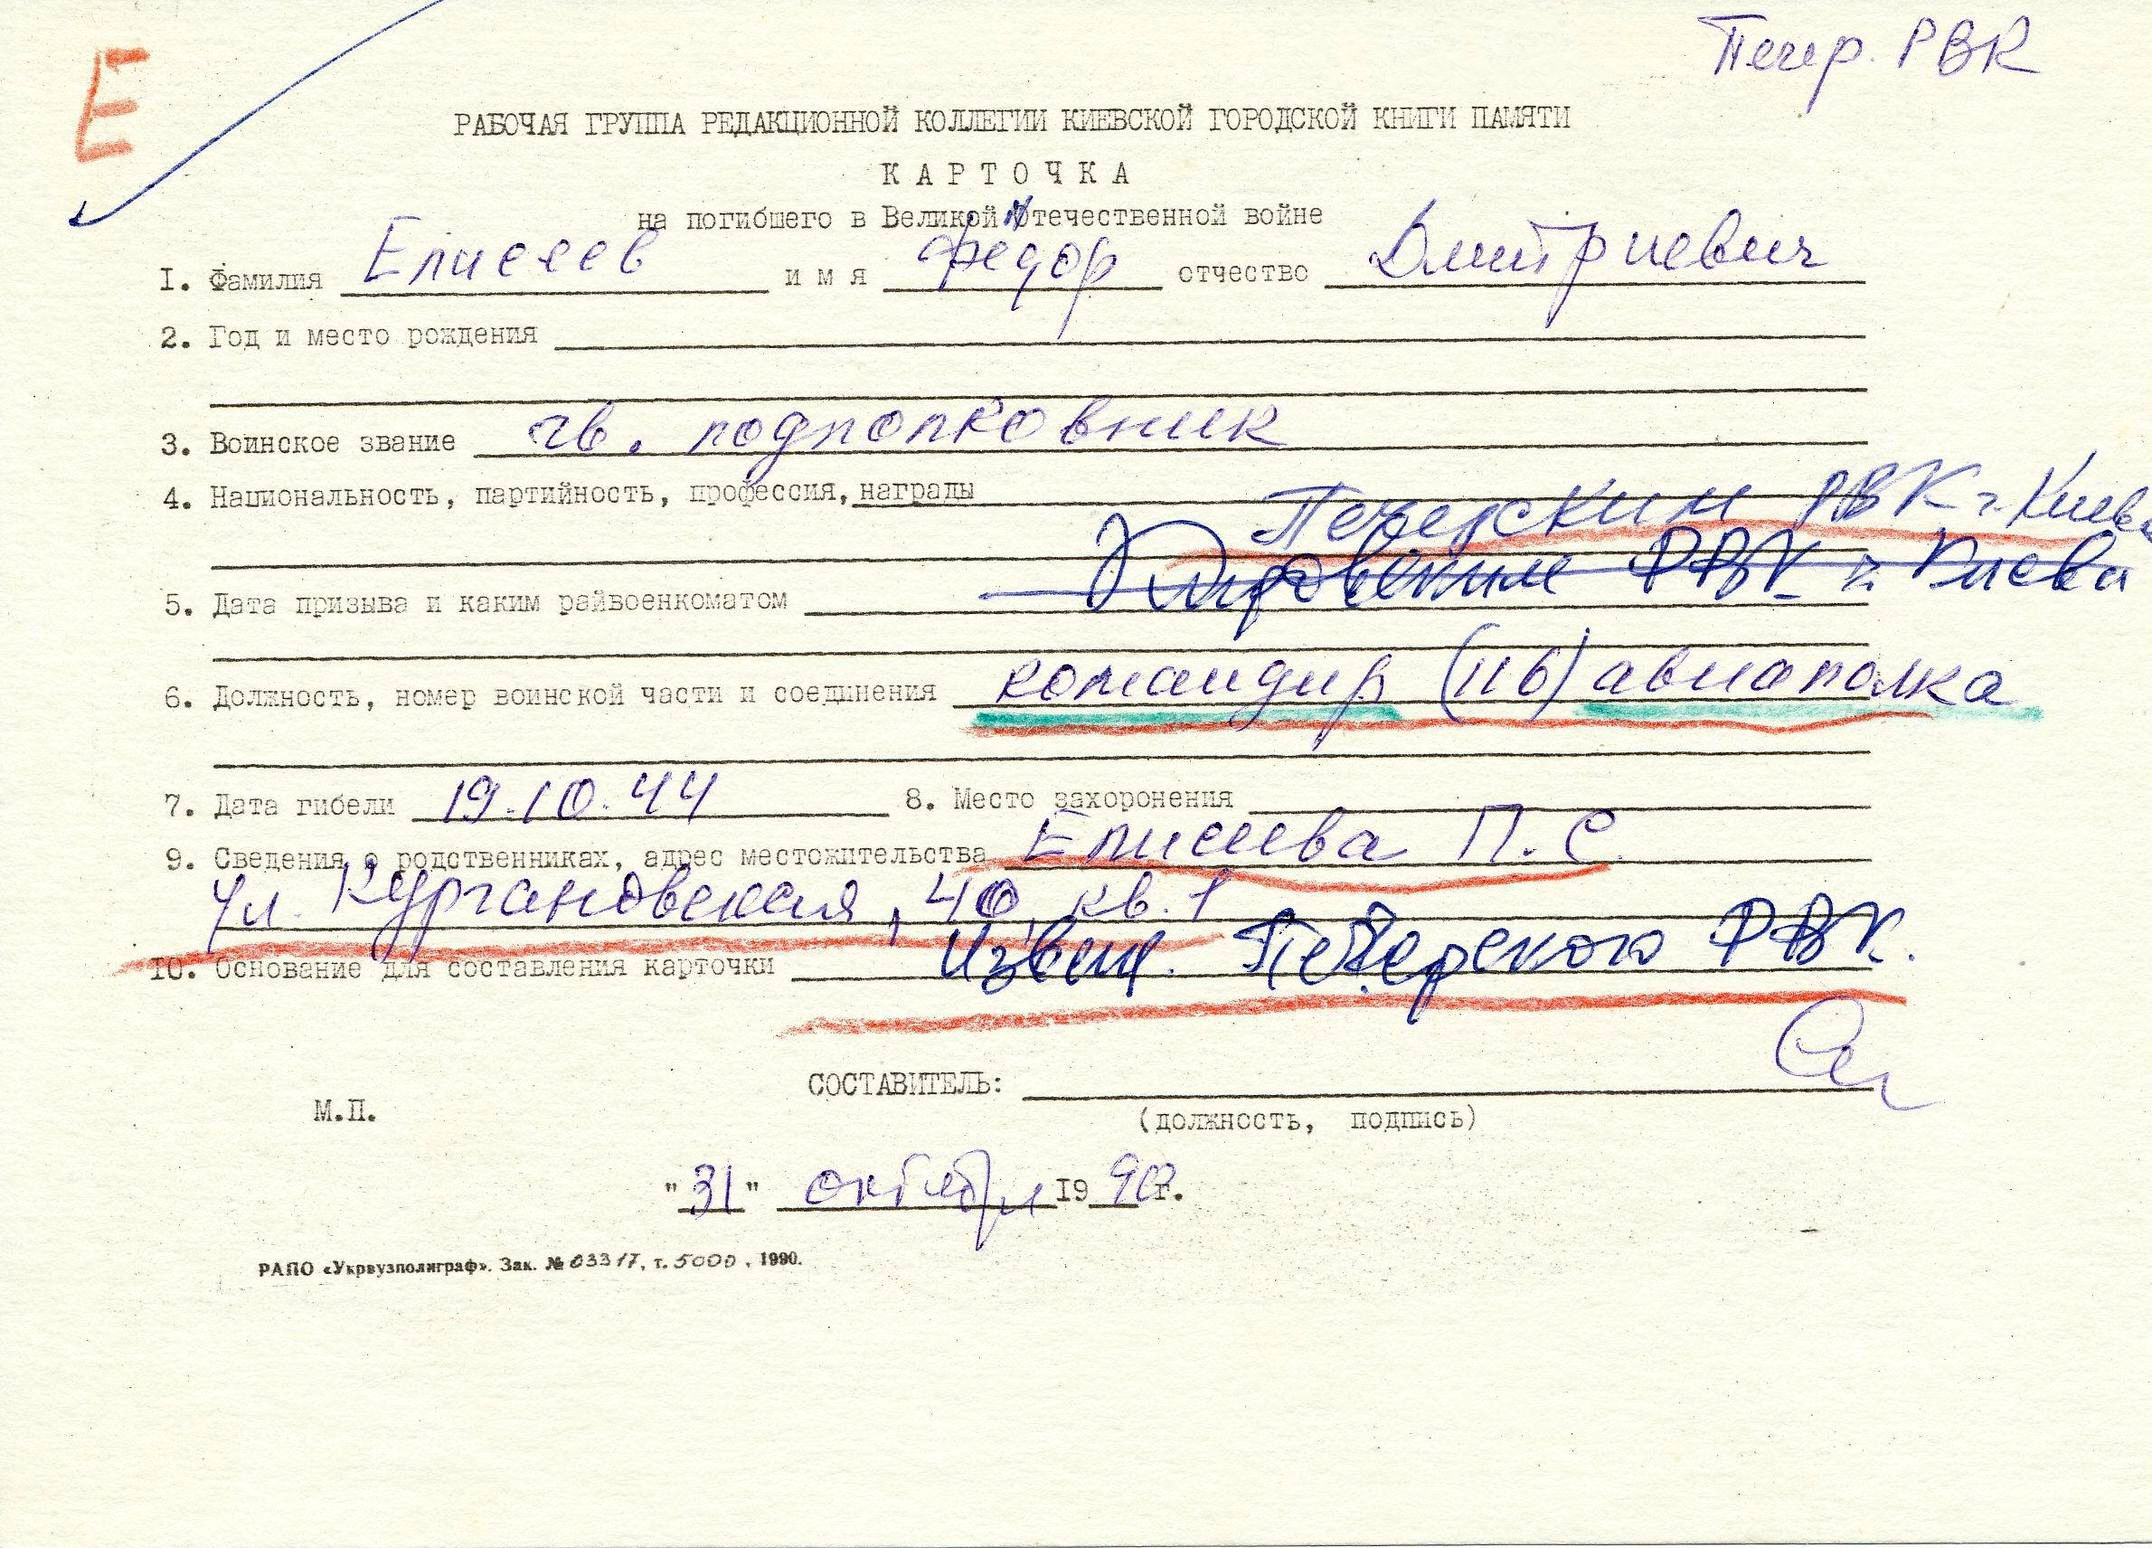 Е
Печер. РВК
РАБОЧАЯ ГРУППА РЕДАКЦИОННОЙ КОЛЛЕГИИ КИЕВСКОЙ ГОРОДСКОЙ КНИГИ ПАМЯТИ
КАРТОЧКА
на погибшего в Великой Отечественной войне
1. Фамилия Елисеев имя Федор отчество Дмитриевич
2. Год и место рождения
3. Воинское звание гв. подполковник
4. Национальность, партийность, профессия, награды
Печерским РВК г. Киева
5. Дата призыва и каким райвоенкоматом Кировским РВК г. Киева
6. Должность, номер воинской части и соединения командир (116) авиаполка
7. Дата гибели 19.10.44 8. Место захоронения
9. Сведения о родственниках, адрес местожительства Елисеева П. С.
ул. Кургановская, 40, кв. 1
10. Основание для составления карточки Извещ. Печерского РВК.
СОСТАВИТЕЛЬ:
М.П.
(должность, подпись)
"31" октября 1990г.
РАПО «Укрвузполиграф». Зак. № 03317, т. 5000, 1990.